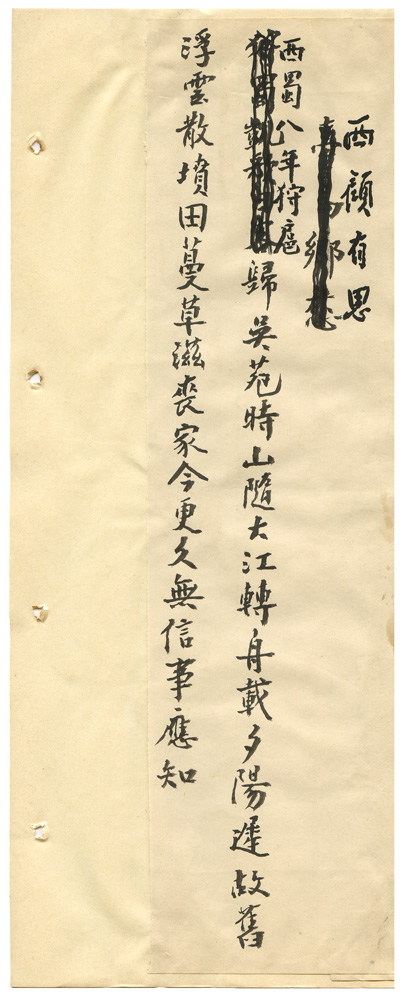 西顧有思
鄉
西蜀八年狩扈
歸吳苑時山隨大江轉舟載夕陽遲故舊
浮雲散墳田蔓草滋喪家今更久無信事應知